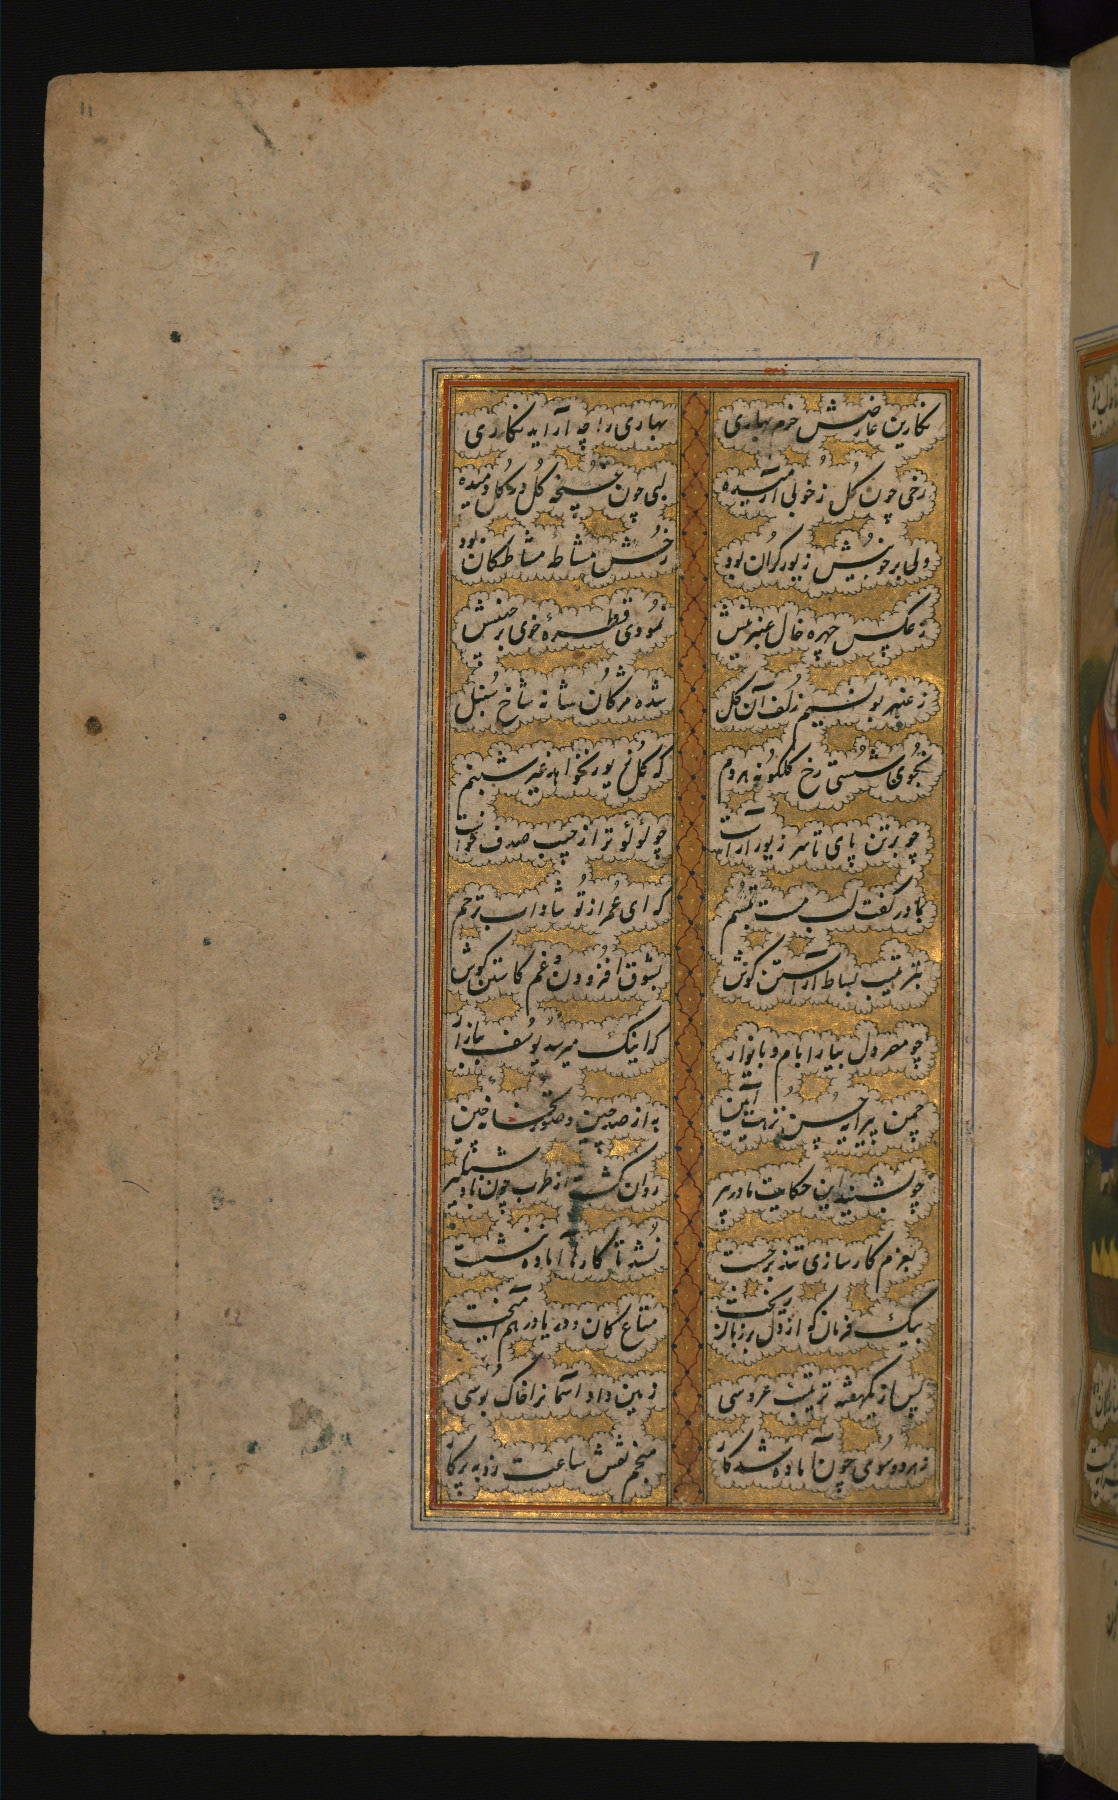 نگارین عارضش خرم بهاری بهاری را چه آراید نگاری
رخی چون گل ز خوبی آرمیده لبی چون غنچه گل در گل دمیده
ولی بر خوبیش زیور گران بود رخش مشاطه مشاطگان بود
ز عکس چهره خال عنبرینش نمودی قطره خوی بر جبینش
ز عنبر بو نسیم زلف آن گل شده مژگان شانه شاخ سنبل
بخوی شستی رخ گلگونه هر دم که گل زیور نخواهد غیر شبنم
چو بر تن پای تا سر زیور آراست چو لؤلؤ تر از جیب صدف خواست
بمادر گفت لب مست تبسم که ای عمر از تو شاداب ترحم
بترتیب بساط آراستن کوش بشوق افزودن و غم کاستن کوش
چو مصر دل بیارا بام و بازار که اینک میرسد یوسف ببازار
چمن پیرایه حسن نزهت آیین به از صد چین و صد بتخانه چین
چو بشنید این حکایت مادر پیر روان گشت از طرب چون باد شبگیر
بعزم کارسازی تند برجست نشد تا کارها آماده ننشست
بیک فرمان که از دل بر زبان ریخت متاع کان و دریا در هم آمیخت
پس از یکهفته ترتیب عروسی زمین داد آسمانرا خاک بوسی
ز هر دو سوی چون آماده شد کار منجم نقش ساعت زد به پرکار